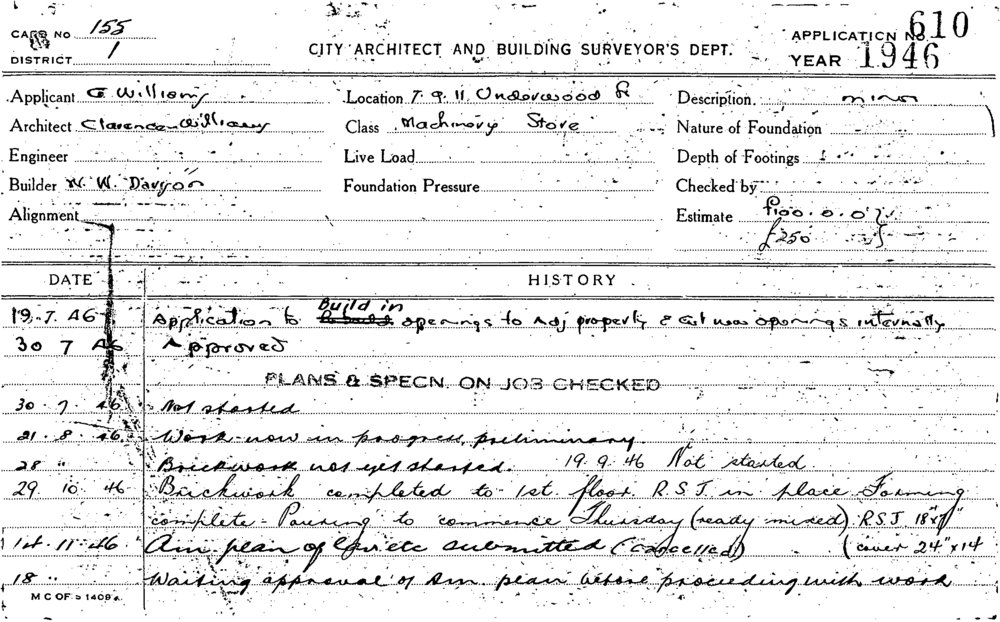 CARD NO 155
DISTRICT 1
CITY ARCHITECT AND BUILDING SURVEYOR'S DEPT.
APPLICATION No. 610
YEAR 1946
Applicant G Williams Location 7.9.11. Underwood St Description minor
Architect Clarence Williams Class Machinery Store Nature of Foundation
Engineer Live Load Depth of Footings
Builder W. W. Foundation Pressure Checked by
Alignment Estimate £100.0.0
£250
DATE HISTORY
Build in
19.7.46 Application to openings to adj property & cut new openings internally
30 7 46 Approved
PLANS & SPECN. ON JOB CHECKED
30 . 7 . 46 Not started
21 . 8 . 46 Work now in progress, preliminary.
28 " Brickwork not yet started. 19.9.46 Not started
29 10 46 Brickwork completed to 1st. floor. R.S.J. in place Forming
complete - Pouring to commence Thursday (ready mixed) R.S.J. 18"x7"
14.11.46 Am plan of Lav etc submitted (cancelled) (cover 24"x14
18 " Waiting approval of Am. plan before proceeding with work
M C OF S 1409